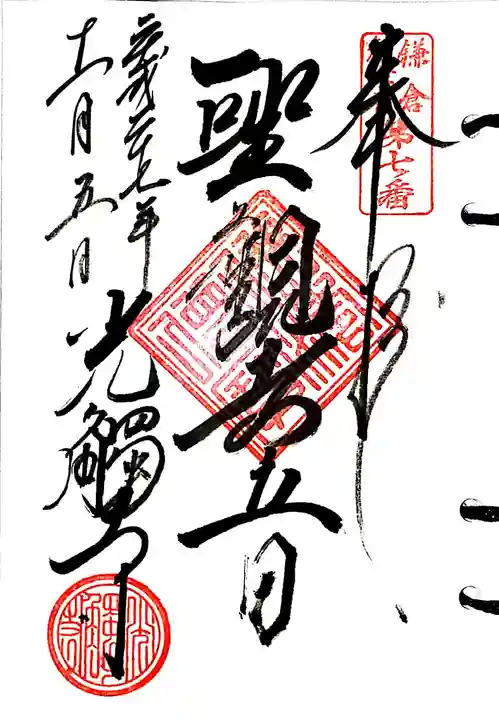 鎌倉
第七番
奉拝
聖觀世音
平成二十七年
十一月五日
光觸寺